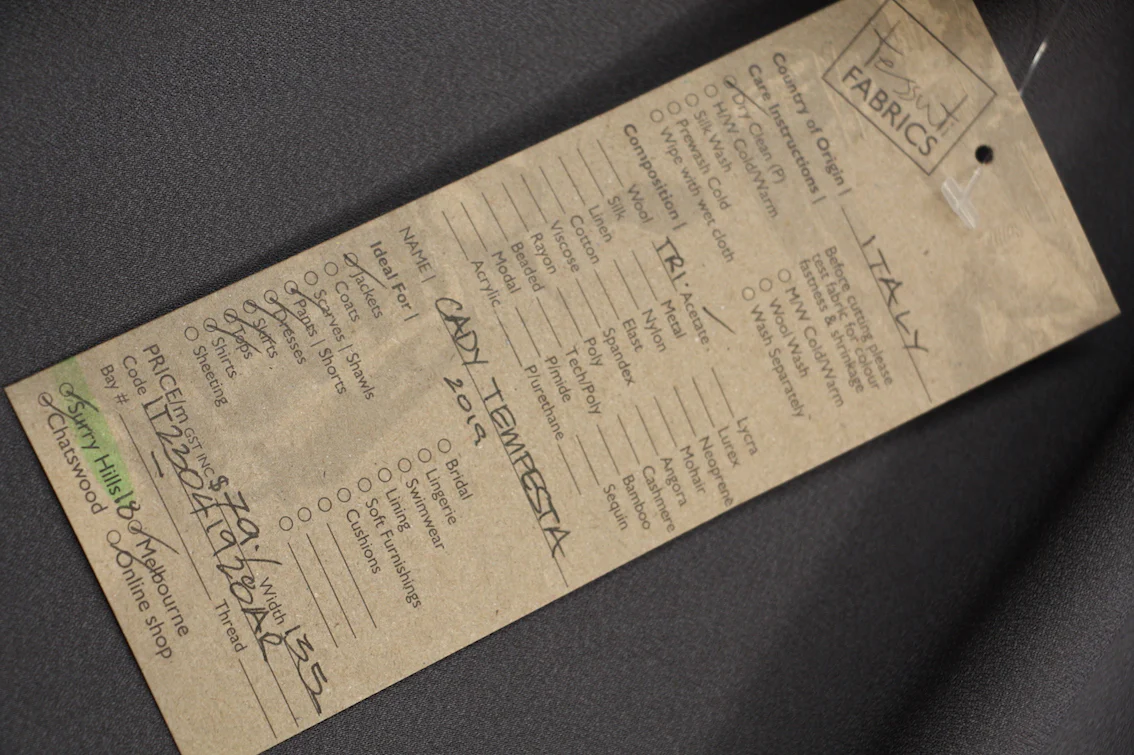 tessuti
FABRICS
Country of Origin | ITALY
Care Instructions |
Dry Clean (P)
H/W Cold/Warm
Silk Wash
Prewash Cold
Wipe with wet cloth
Before cutting please
test fabric for colour
fastness & shrinkage
M/W Cold/Warm
Wool Wash
Wash Separately
Composition | TRI.
Wool
Silk
Linen
Cotton
Viscose
Rayon
Beaded
Modal
Acrylic
Acetate
Metal
Nylon
Elast
Spandex
Poly
Tech/Poly
P/mide
P/urethane
Lycra
Lurex
Neoprene
Mohair
Angora
Cashmere
Bamboo
Sequin
NAME | CADY TEMPESTA
2019
Ideal For |
Jackets
Coats
Scarves | Shawls
Pants | Shorts
Dresses
Skirts
Tops
Shirts
Sheeting
Bridal
Lingerie
Swimwear
Lining
Soft Furnishings
Cushions
PRICE/m GST INC $79./ Width 135
Code IT2204
Bay # Thread
Surry Hills 18 Melbourne
Chatswood Online shop